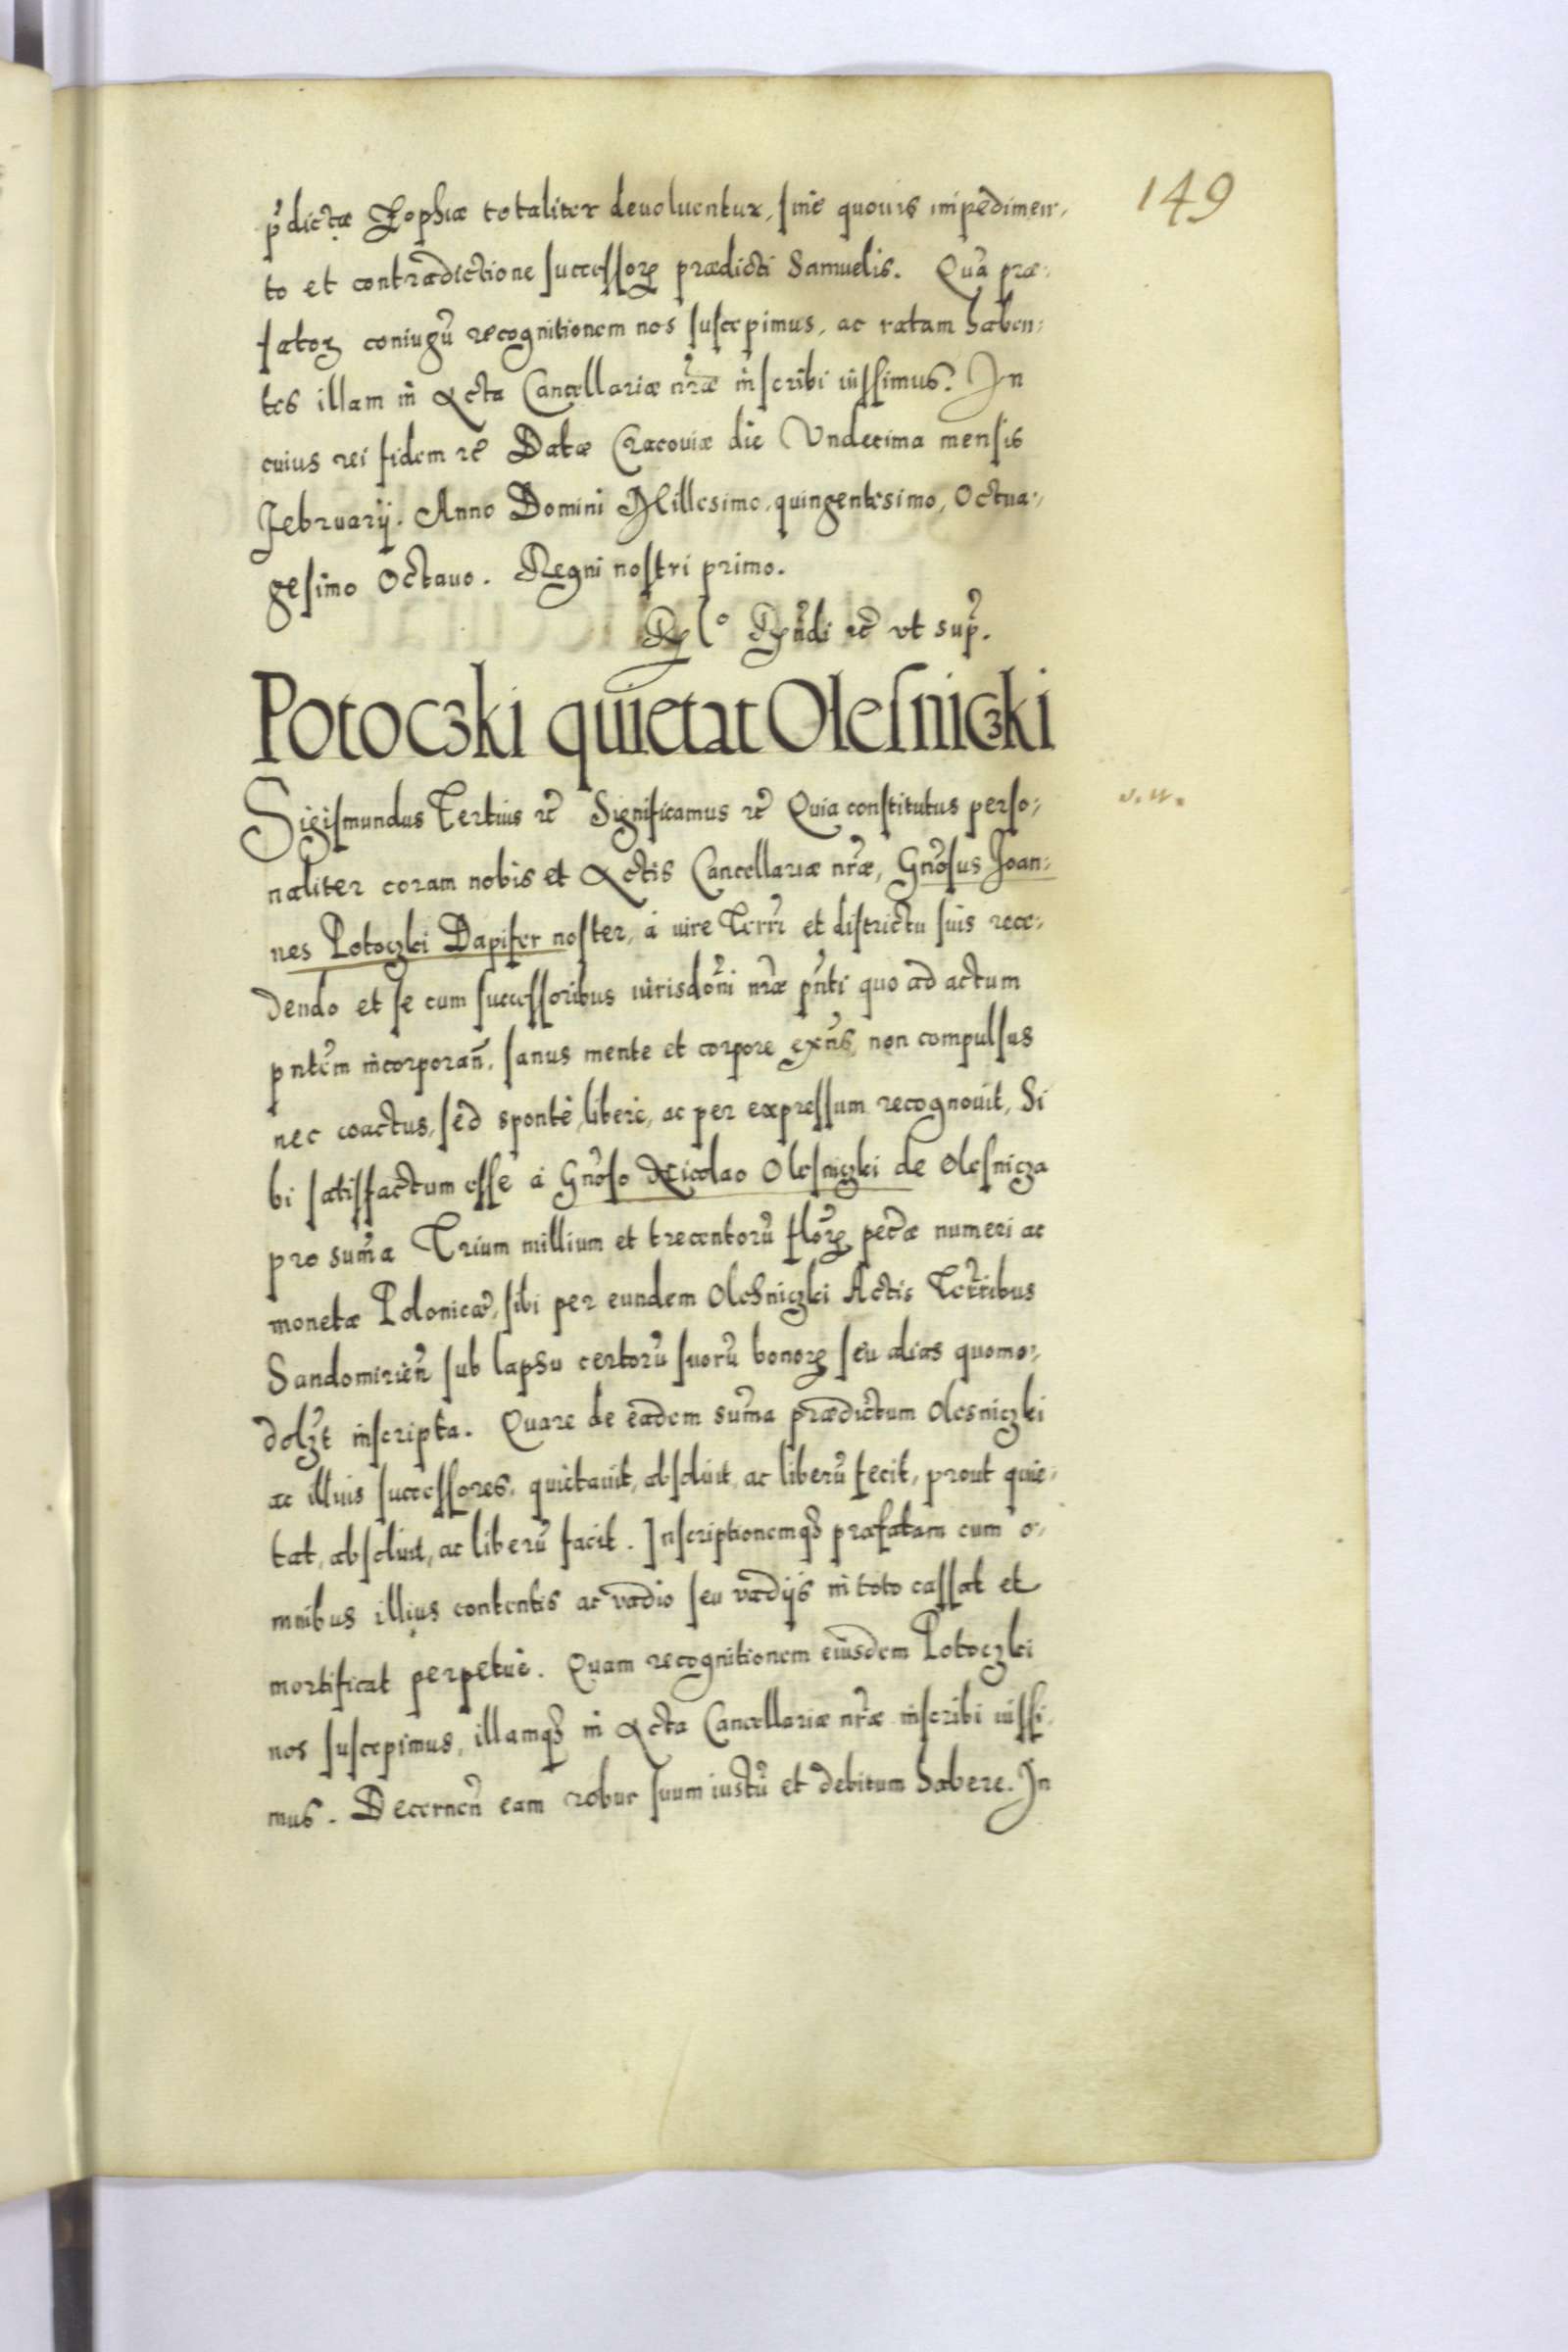 149
p̃dictæ Zophiæ totaliter deuoluentur, sine quouis impedimen-
to et contradictione successorꝝ prædicti Samuelis. Quã præ-
fatoꝝ coniugũ recognitionem nos suscepimus, ac ratam haben-
tes illam in Acta Cancellariæ nr̃æ inscribi iussimus. In
cuius rei fidem etc̃ Datæ Cracouiæ die Vndecima mensis
Februarij. Anno Domini Millesimo, quingentesimo, Octua-
gesimo Octauo. Regni nostri primo.
etc̃ vt sup̃.
Potoczki quietat Olesniczki
Sigismundus Tertius etc̃ Significamus etc̃ Quia constitutus perso-
naliter coram nobis et Actis Cancellariæ nr̃æ, Gñosus Joan-
nes Potoczki Dapifer noster, à iure Terrĩ et districtu suis rece-
dendo et se cum successoribus iurisdoñi nr̃æ p̃nti quo ad actum
pntẽm incorporañ, sanus mente et corpore exñs, non compulsus
nec coactus, sed sponte, libere, ac per expressum recognouit, Si
bi satisfactum esse à Gñoso Nicolao Olesniczki de Olesnicza
pro sum̃a Trium millium et trecentorũ flor̃ꝝ pec̃æ numeri ac
monetæ Polonicæ, sibi per eundem Olesniczki Actis Terr̃ibus
Sandomirieñ sub lapsu certorũ suorũ bonorꝝ seu alias quomo-
dolꝫt inscripta. Quare de eadem sum̃a prædictum Olesniczki
ac illius successores, quietauit, absoluit, ac liberũ fecit, prout quie-
tat, absoluit, ac liberũ facit. Inscriptionemqꝫ præfatam cum o-
mnibus illius contentis ac vadio seu vadijs in toto cassat et
mortificat perpetue. Quam recognitionem eiusdem Potoczki
nos suscepimus, illamqꝫ in Acta Cancellariæ nr̃æ inscribi iussi-
mus. Decerneñ eam robur suum iustũ et debitum habere. In